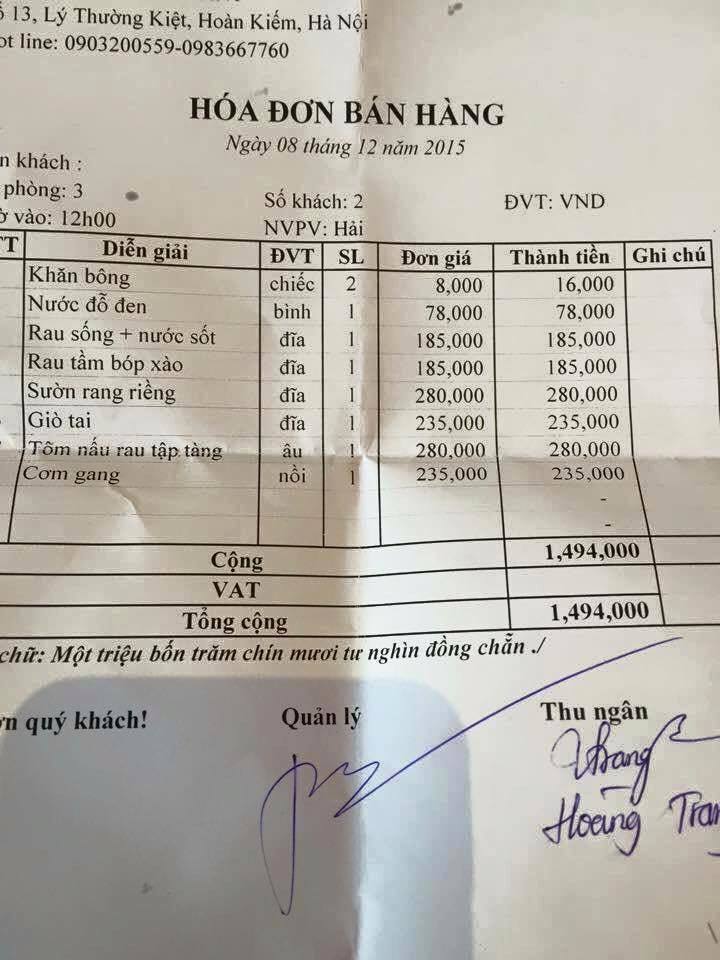 ố 13, Lý Thường Kiệt, Hoàn Kiếm, Hà Nội
ot line: 0903200559-0983667760
HÓA ĐƠN BÁN HÀNG
Ngày 08 tháng 12 năm 2015
n khách :
phòng: 3 Số khách: 2 ĐVT: VND
ờ vào: 12h00 NVPV: Hải
T Diễn giải ĐVT SL Đơn giá Thành tiền Ghi chú
Khăn bông chiếc 2 8,000 16,000
Nước đỗ đen bình 1 78,000 78,000
Rau sống + nước sốt đĩa 1 185,000 185,000
Rau tầm bóp xào đĩa 1 185,000 185,000
Sườn rang riềng đĩa 1 280,000 280,000
Giò tai đĩa 1 235,000 235,000
Tõm nấu rau tập tàng âu 1 280,000 280,000
Cơm gang nồi 1 235,000 235,000
-
-
Cộng 1,494,000
VAT
Tổng cộng 1,494,000
chữ: Một triệu bốn trăm chín mươi tư nghìn đồng chẵn ./
ơn quý khách! Quản lý Thu ngân
Hoàng Tran